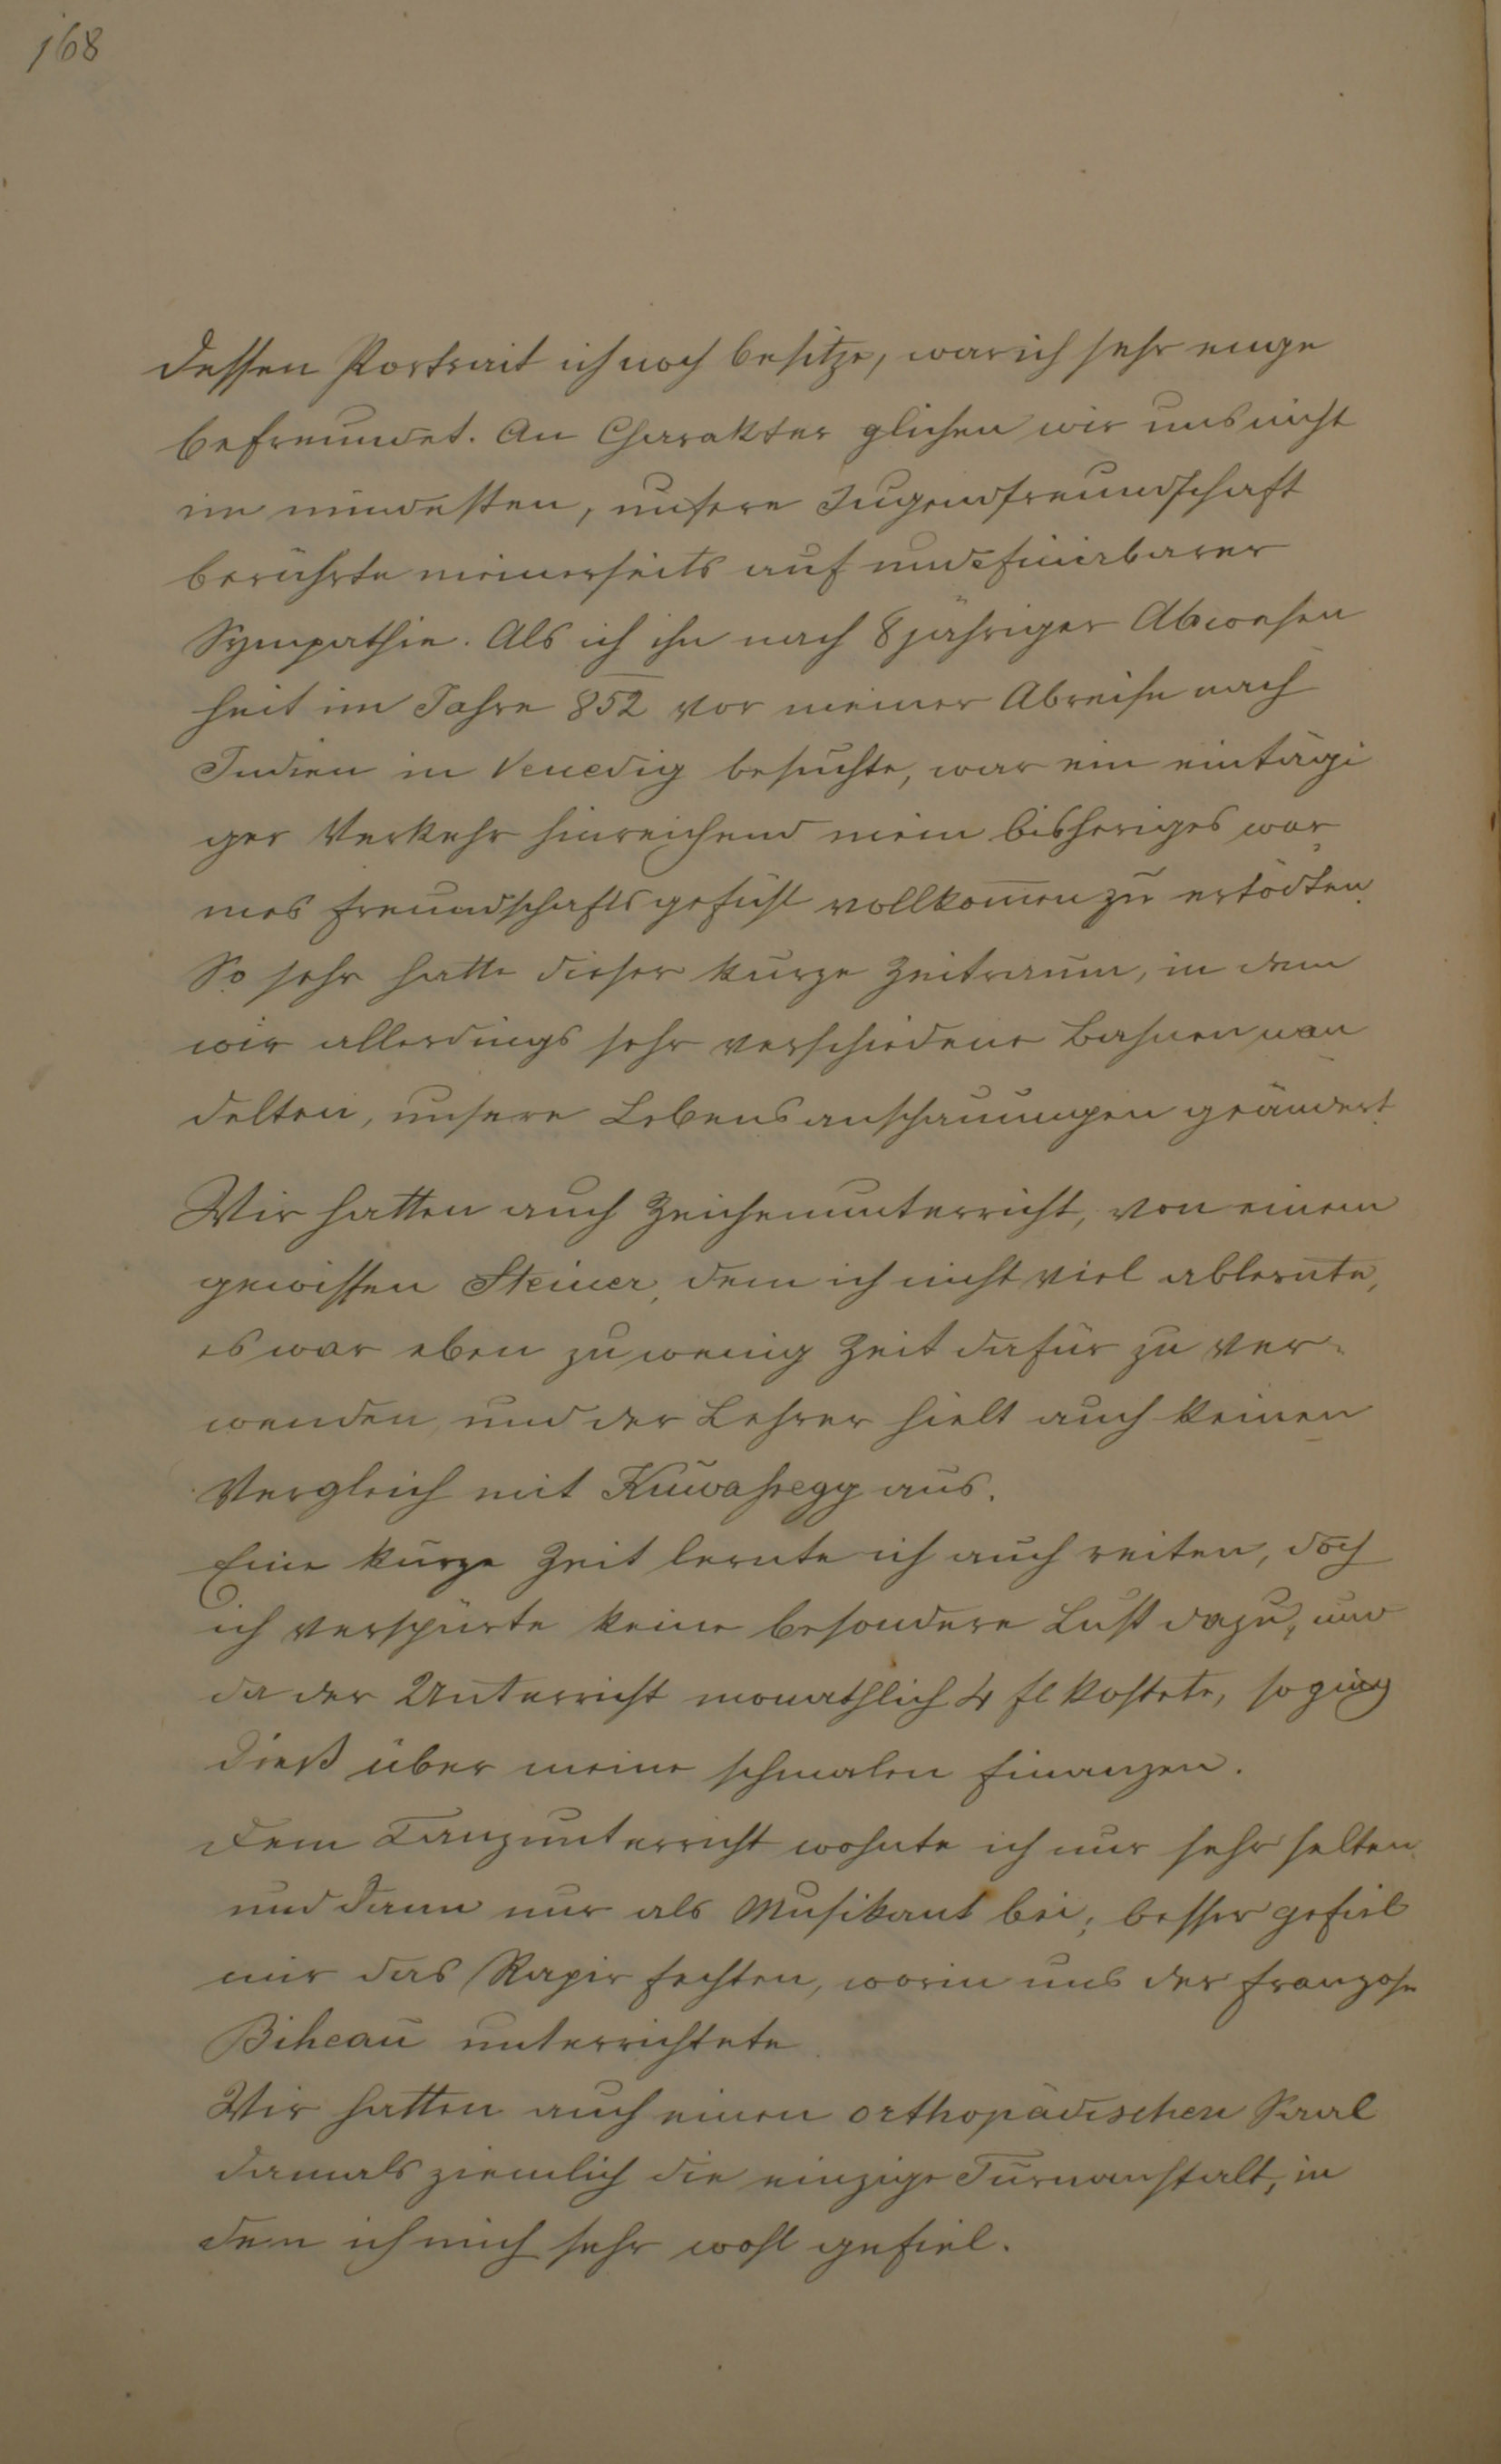 168
dessen Portrait ich noch besitze, war ich sehr enge
befreundet. An Charakter glichen wir uns nicht
im mindesten, unsere Jugendfreundschaft
berührte meinerseits auf undefinirbarer
Sympathie. Als ich ihn nach 8 jähriger Abwesen
heit im Jahre 852 vor meiner Abreise nach
Indien in Venedig besuchte, war ein eintägi
ger Verkehr hinreichend mein bisheriges war
mes Freundschaftsgefühl vollkom̄en zu ertödten.
So sehr hatte dieser kurze Zeitraum, in dem
wir allerdings sehr verschiedene Bahnen wan
delten, unsere Lebensanschauungen geändert.
Wir hatten auch Zeichenunterricht, von einem
gewissen Steiner, dem ich nicht viel ablernte,
es war eben zu wenig Zeit dafür zu ver-
wenden, und der Lehrer hielt auch keinen
Vergleich mit Kuwassegg aus.
Eine kurze Zeit lernte ich auch reiten, doch
ich verspürte keine besondere Lust dazu, und
da der Unterricht monathlich 4 fl kostete, so ging
dieß über meine schmalen Finanzen.
Dem Tanzunterricht wohnte ich nur sehr selten
und dann nur als Musikant bei; besser gefiel
mir das Rapir fechten, worin uns der Franzose
Biheau unterrichtete.
Wir hatten auch einen orthopädischen Saal
damals ziemlich die einzige Turnanstalt, in
dem ich mich sehr wohl gefiel.